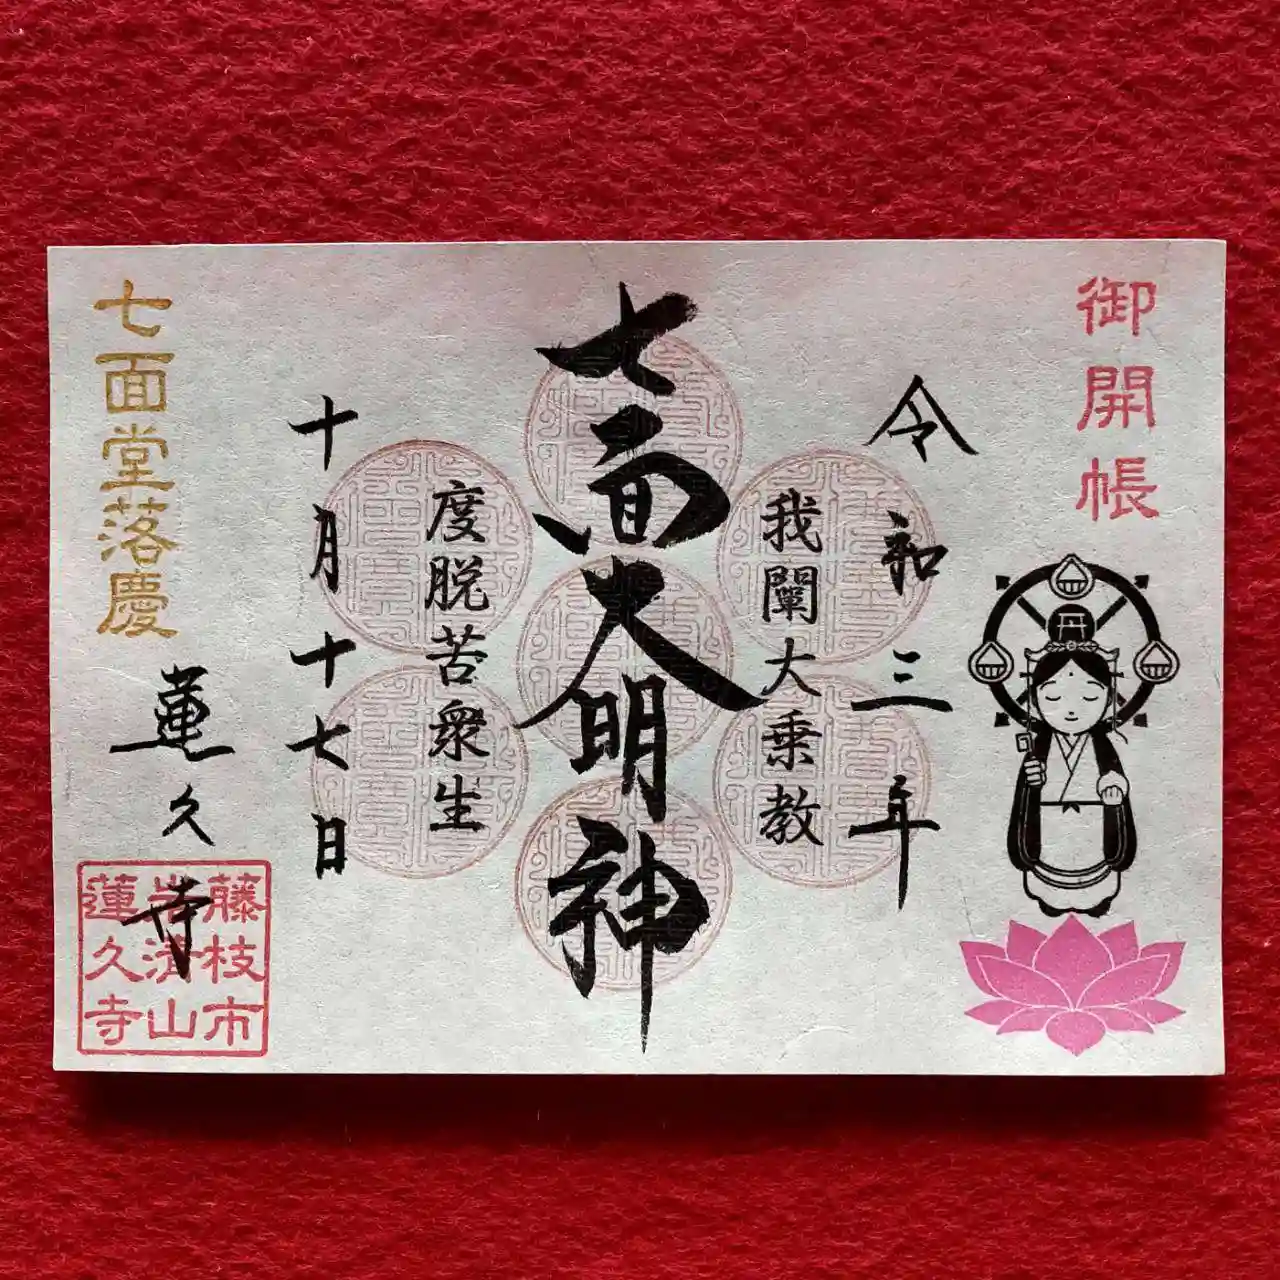 御開帳
令和三年
我闡大乗教
七面大明神
度脱苦衆生
十月十七日
七面堂落慶
蓮久寺
藤枝市
清山
蓮久寺